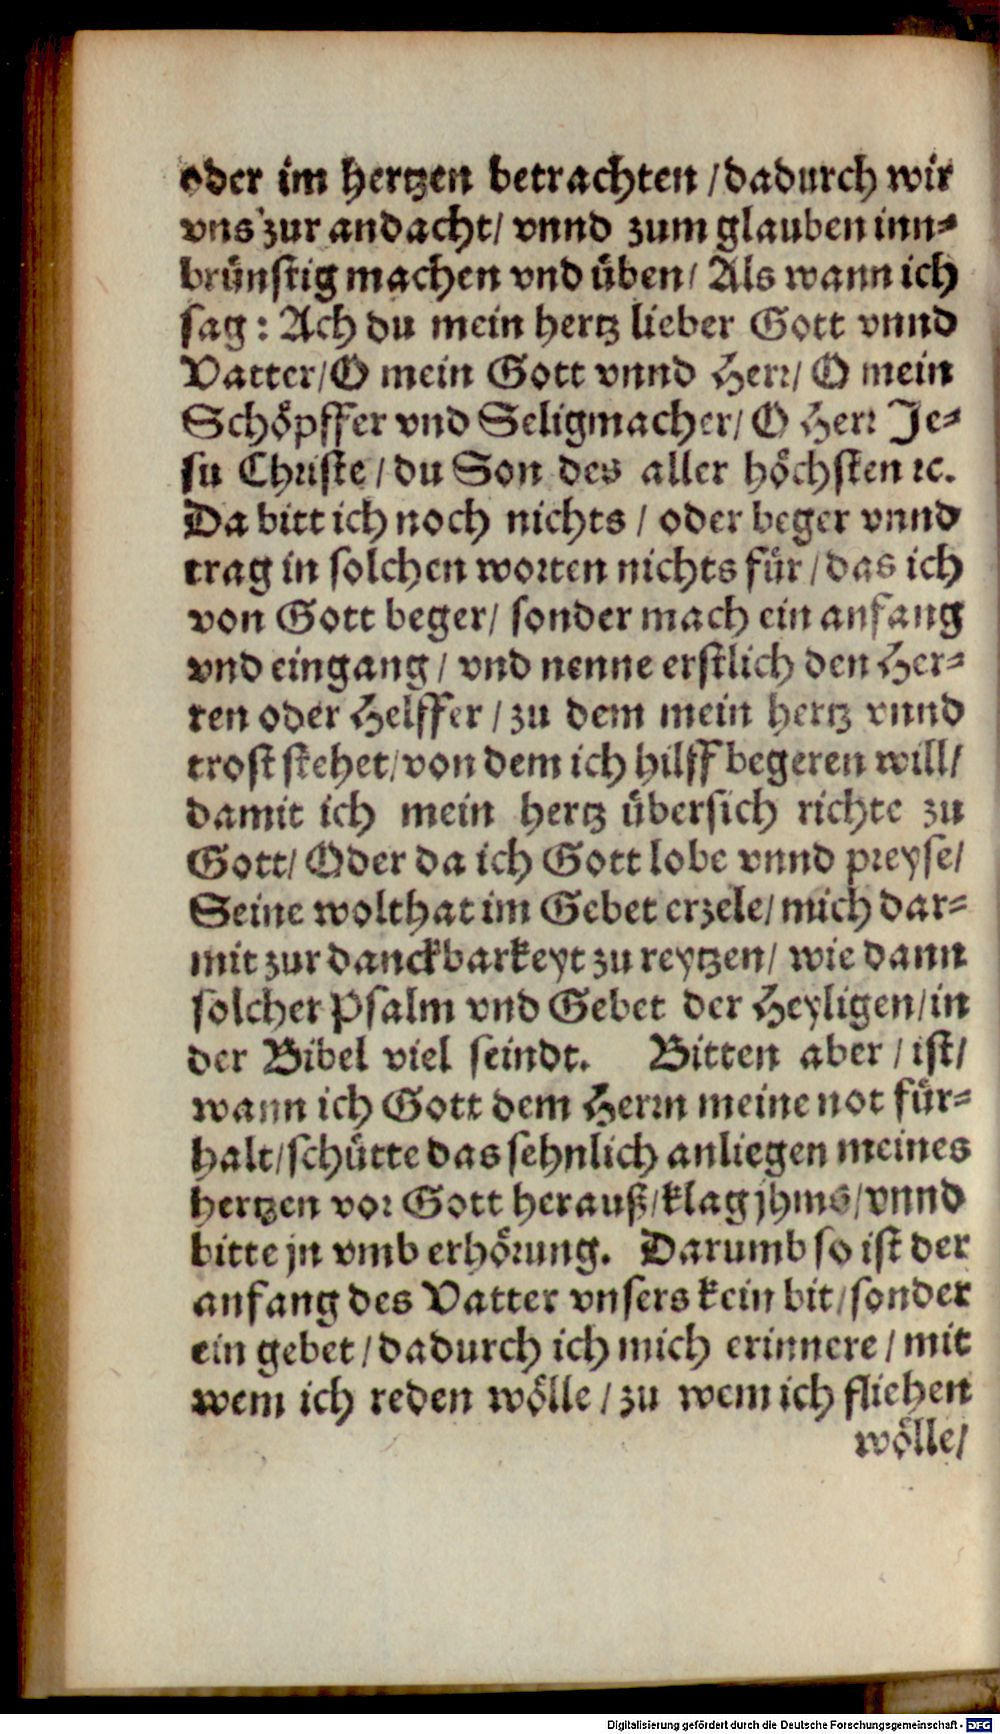 oder im hertzen betrachten / dadurch wir
vns zur andacht / vnnd zum glauben inn⸗
brünstig machen vnd üben / Als wann ich
sag : Ach du mein hertz lieber Gott vnnd
Vatter / O mein Gott vnnd Herr / O mein
Schöpffer vnd Seligmacher / O Herr Je⸗
su Christe / du Son des aller höchsten ꝛc.
Da bitt ich noch nichts / oder beger vnnd
trag in solchen worten nichts für / das ich
von Gott beger / sonder mach ein anfang
vnd eingang / vnd nenne erstlich den Her⸗
ren oder Helffer / zu dem mein hertz vnnd
trost stehet / von dem ich hilff begeren will /
damit ich mein hertz übersich richte zu
Gott / Oder da ich Gott lobe vnnd preyse /
Seine wolthat im Gebet erzele / mich dar⸗
mit zur danckbarkeyt zu reytzen / wie dann
solcher Psalm vnd Gebet der Heyligen / in
der Bibel viel seindt. Bitten aber / ist /
wann ich Gott dem Herrn meine not für⸗
halt / schütte das sehnlich anliegen meines
hertzen vor Gott herauß / klag jhms / vnnd
bitte jn vmb erhörung. Darumb so ist der
anfang des Vatter vnsers kein bit / sonder
ein gebet / dadurch ich mich erinnere / mit
wem ich reden wölle / zu wem ich fliehen
wölle /
Digitalisierung gefördert durch die Deutsche Forschungsgemeinschaft - DFG